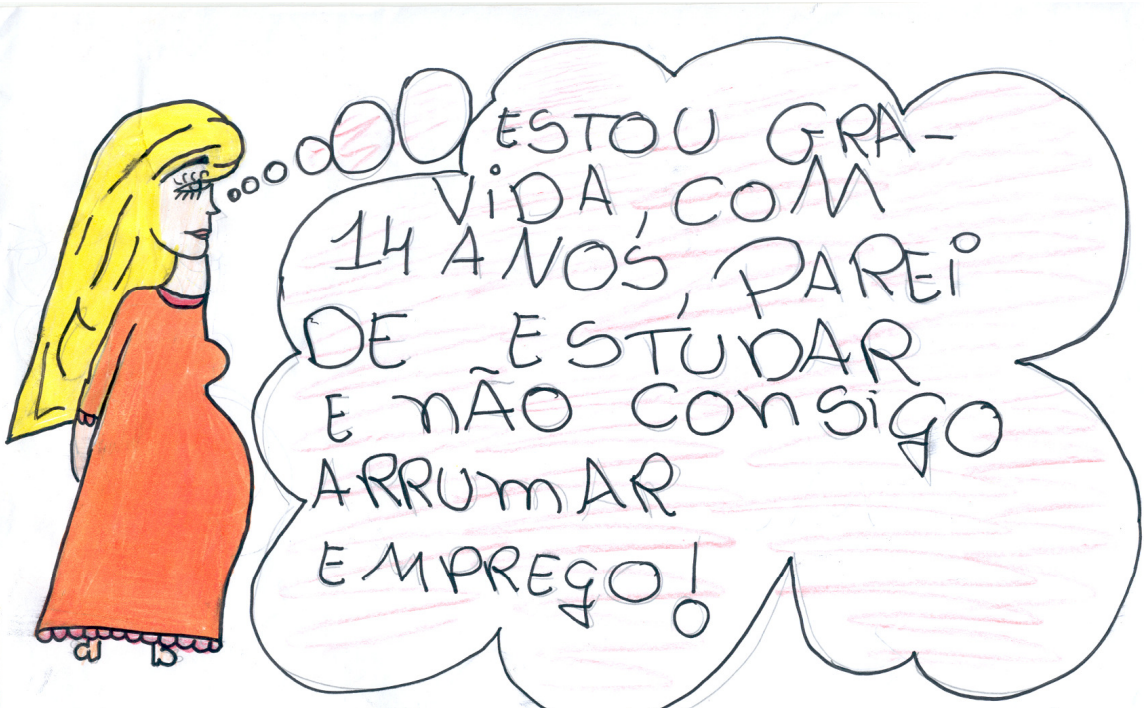 ESTOU GRA-
VIDA, COM
14 ANOS, PAREI
DE ESTUDAR
E NÃO CONSIGO
ARRUMAR
EMPREGO!